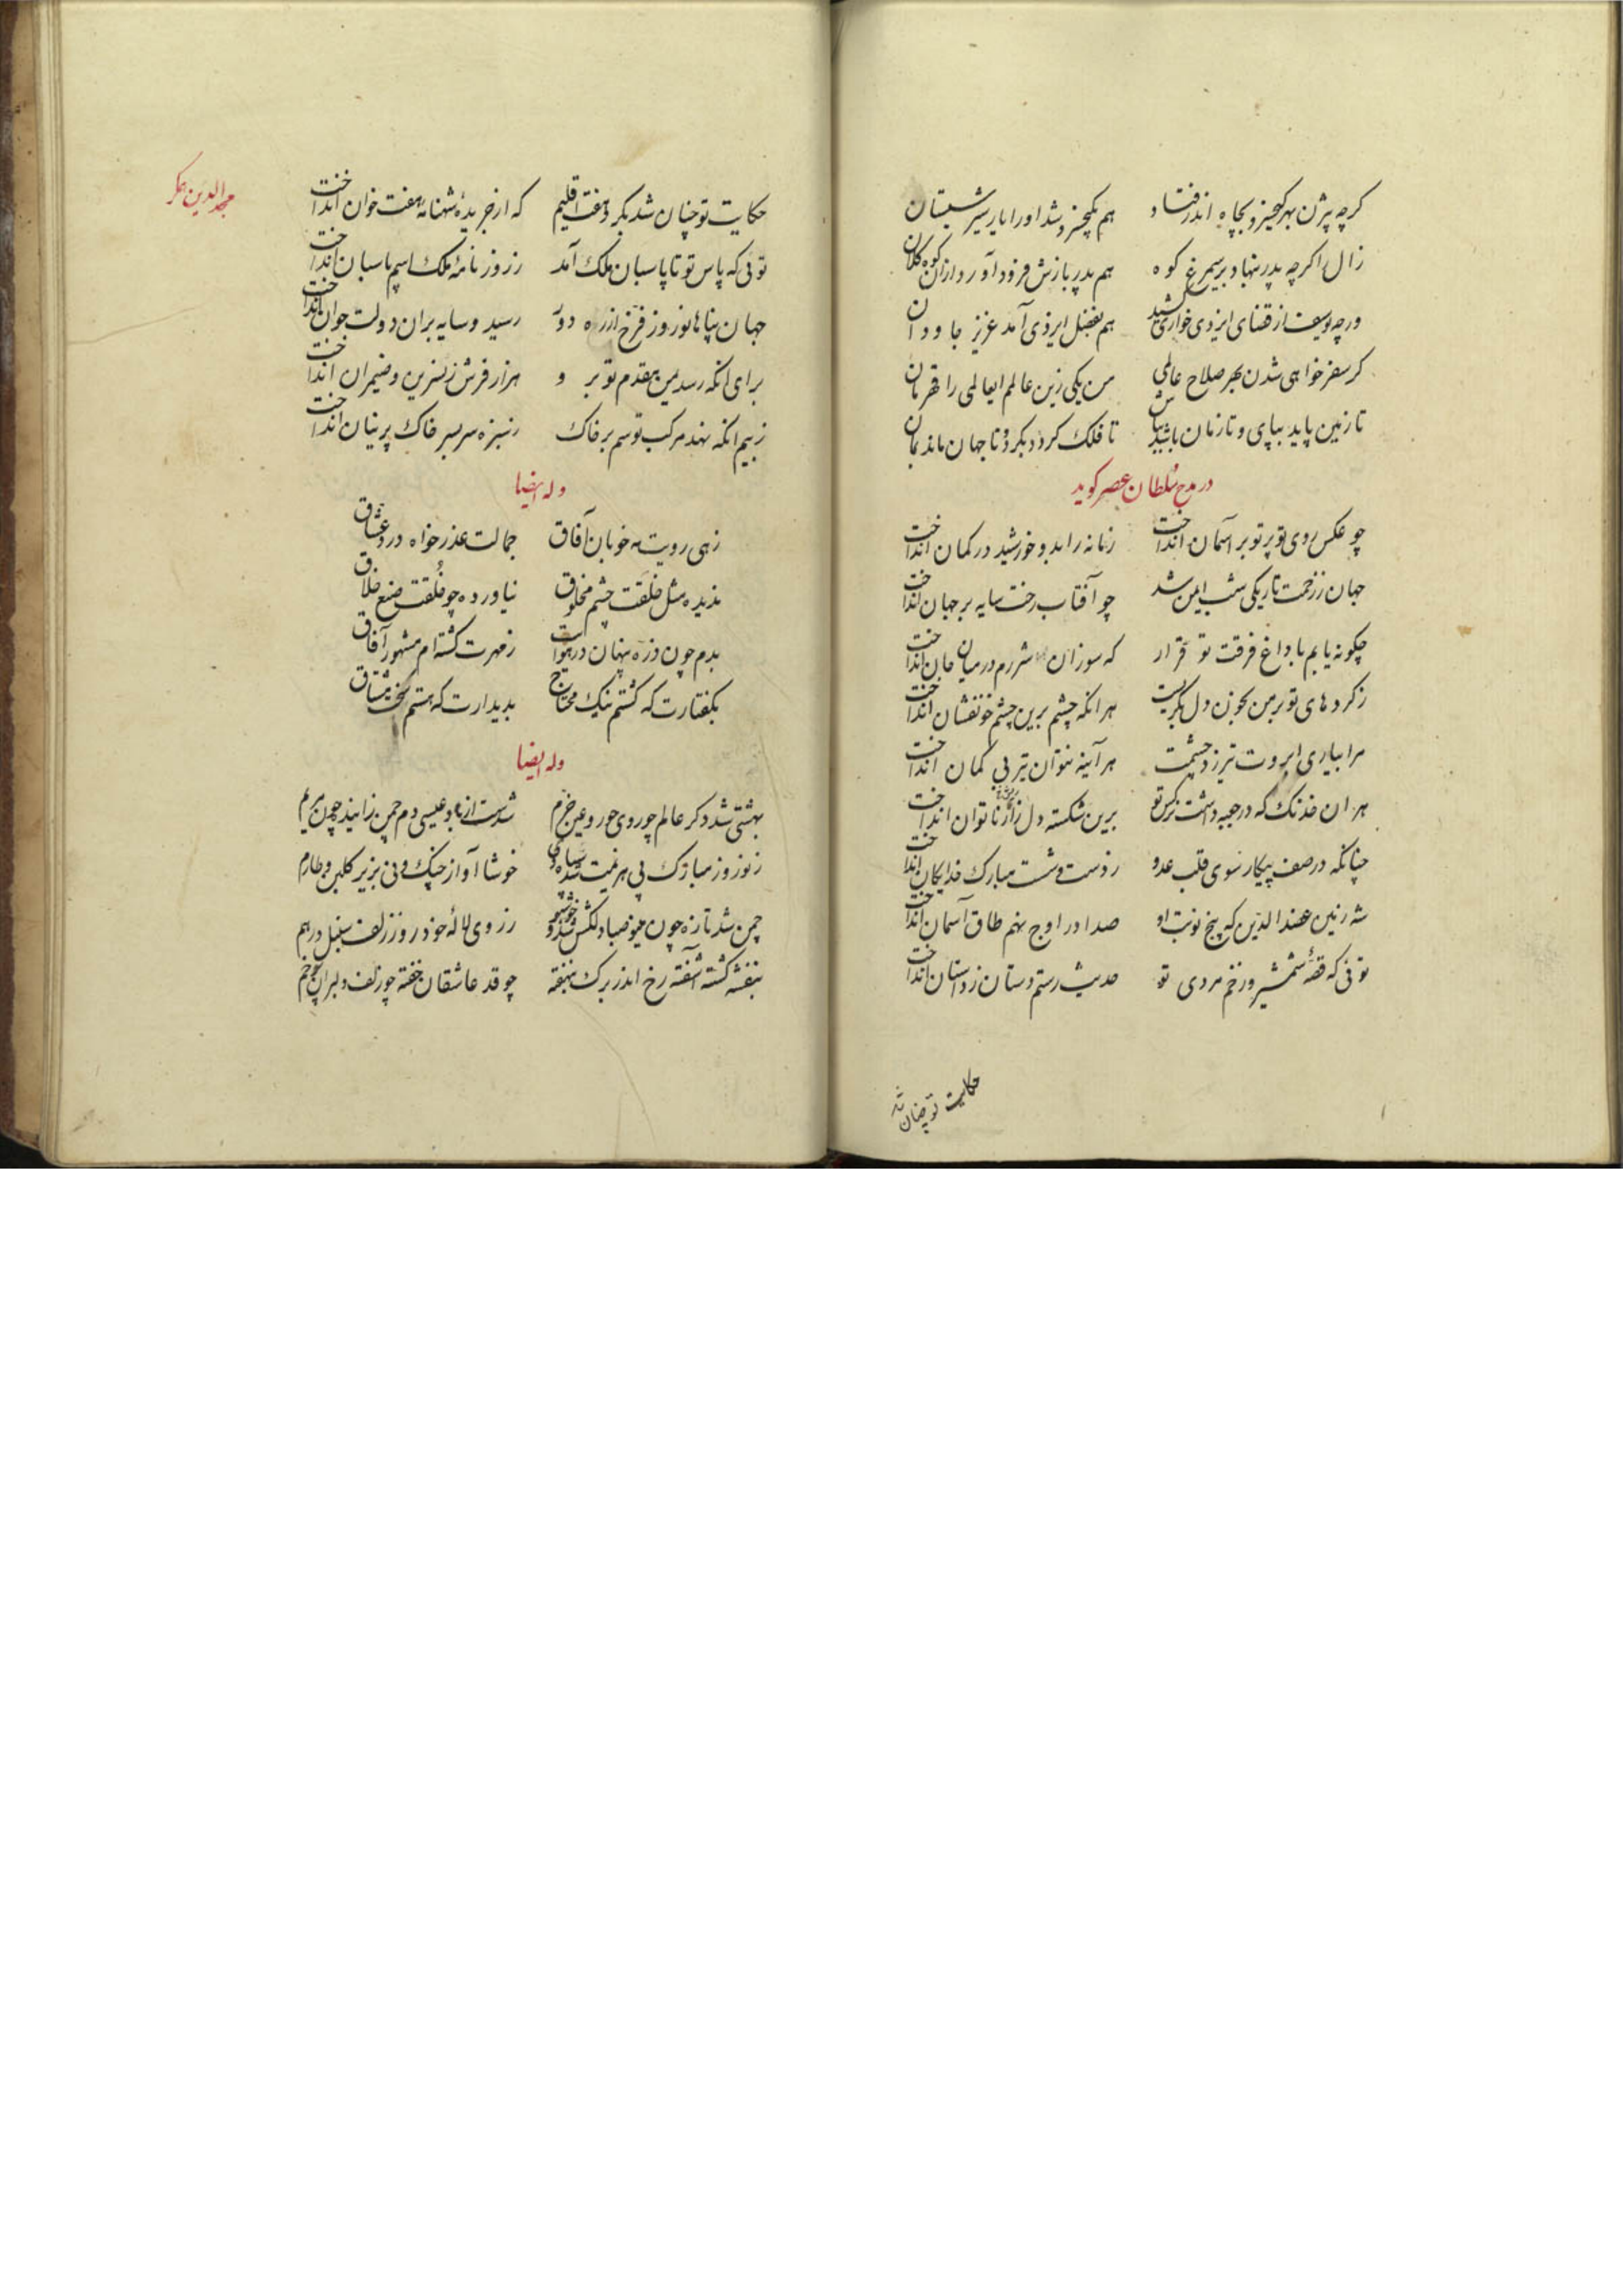 کرچه بیژن بهر کیخسرو بچاه اندر فتاد هم بکیخسرو شد او را یار سیر شبستان
زال را کرچه پدر بنهاد بر سیمرغ کوه هم پدر بازش فرود آورد از ان کوه کلان
ور چه یوسف از قضای ایزدی خواری کشید هم بفضل ایزدی آمد عزیز جاودان
کر سفر خواهی شدن بهر صلاح عالمی من یکی زین عالمم ای عالمی را قهرمان
تا زمین پاید بپای و تا زمان باشد بباش تا فلک کردد بکرد و تا جهان ماند بمان
در مدح سلطان عصر کوید
چو عکس روی تو پرتو بر آسمان انداخت زمانه را بدو خورشید در کمان انداخت
جهان ز زحمت تاریکی شب ایمن شد چو آفتاب رخت سایه بر جهان انداخت
چکونه یابم با داغ فرقت تو قرار که سوز ان شررم در میان جان انداخت
ز کردهای تو بر من بخون دل بکریست هر انکه چشم برین چشم خونفشان انداخت
مرا بیاری ابروت تیر زد چشمت هر آینه نتوان تیر بی کمان انداخت
هر ان خدنک که در جعبه داشت نرکس تو برین شکسته دل زار ناتوان انداخت
چنانکه در صف پیکار سوی قلب عدو ز دست و شست مبارک خدایکان انداخت
شه زمین عضد الدین که پنج نوبت او صدا در اوج نهم طاق آسمان انداخت
توئی که قصهٔ شمشیر و زخم مردی تو حدیث رستم دستان ز داستان انداخت
حکایت تو چنان شد
مجد الدین همکر
حکایت تو چنان شد بکرد هفت اقلیم که از جریدهٔ شهنامه هفت خوان انداخت
توئی که پاس تو تا پاسبان ملک آمد ز روزنامهٔ ملک اسم پاسبان انداخت
جهان پناها نوروز فرخ از ره دور رسید و سایه بران دولت جوان انداخت
برای انکه رسد یمن مقدم تو برو هزار فرش ز نسرین و ضیمران انداخت
ز بیم انکه نهد مرکب تو سم بر خاک ز سبزه سر بسر خاک پرنیان انداخت
وله ایضا
زهی رویت مه خوبان آفاق جمالت عذر خواه درد عشاق
ندیده مثل خلقت چشم مخلوق نیاورده چو خلقت صنع خلاق
بدم چون ذره پنهان در هوایت ز مهرت کشته ام مشهور آفاق
بکفتارت که کشتم نیک محتاج بدیدارت که هستم سخت مشتاق
وله ایضا
بهشتی شد دکر عالم چو روی حور و عین خرم شدست از باد عیسی دم چمن زاینده چون مریم
ز نوروز مبارک پی هزیمت شد سپاه دی خوشا آواز چنک و نی بزیر کلبن و طارم
چمن شد تازه چون مینو صبا دلکش شد و خوشبو ز روی لالهٔ خودرو ز زلف سنبل درهم
بنفشه کشته آشفته رخ اندر برک بنهفته چو قد عاشقان خفته چو زلف دلبران پر خم